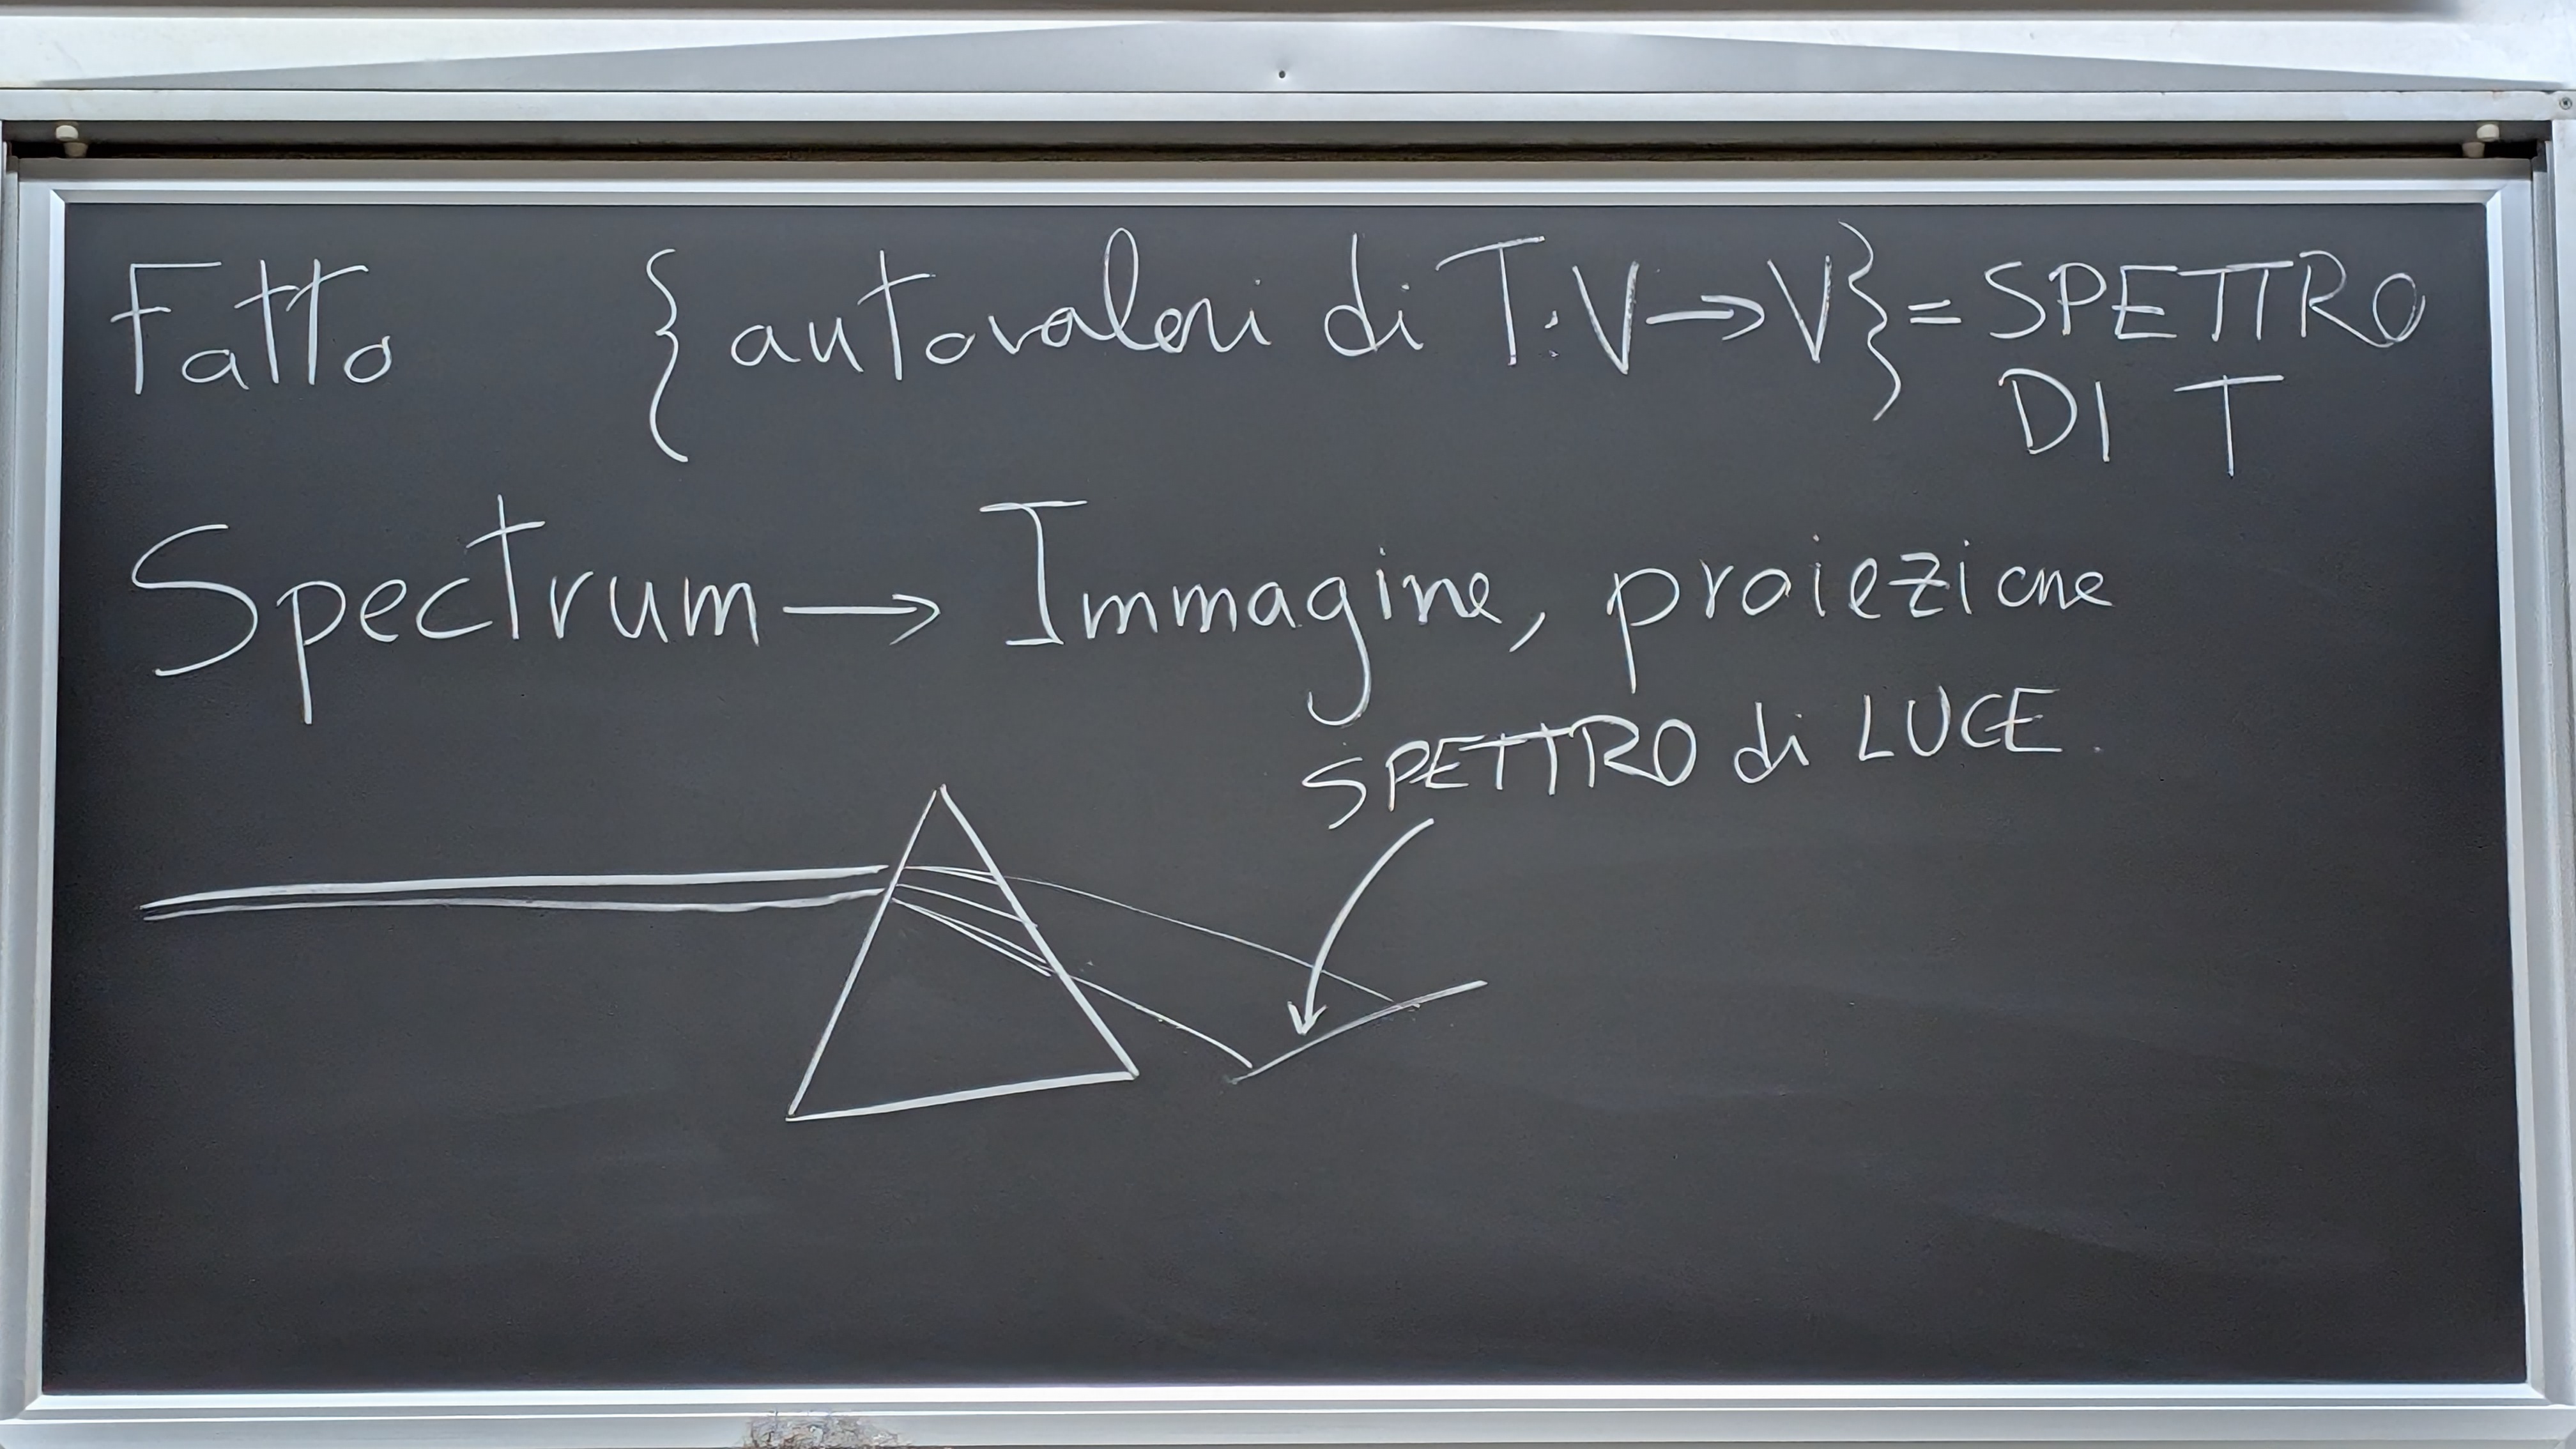 Fatto {autovalori di T:V→V} = SPETTRO
DI T
Spectrum → Immagine, proiezione
SPETTRO di LUCE.